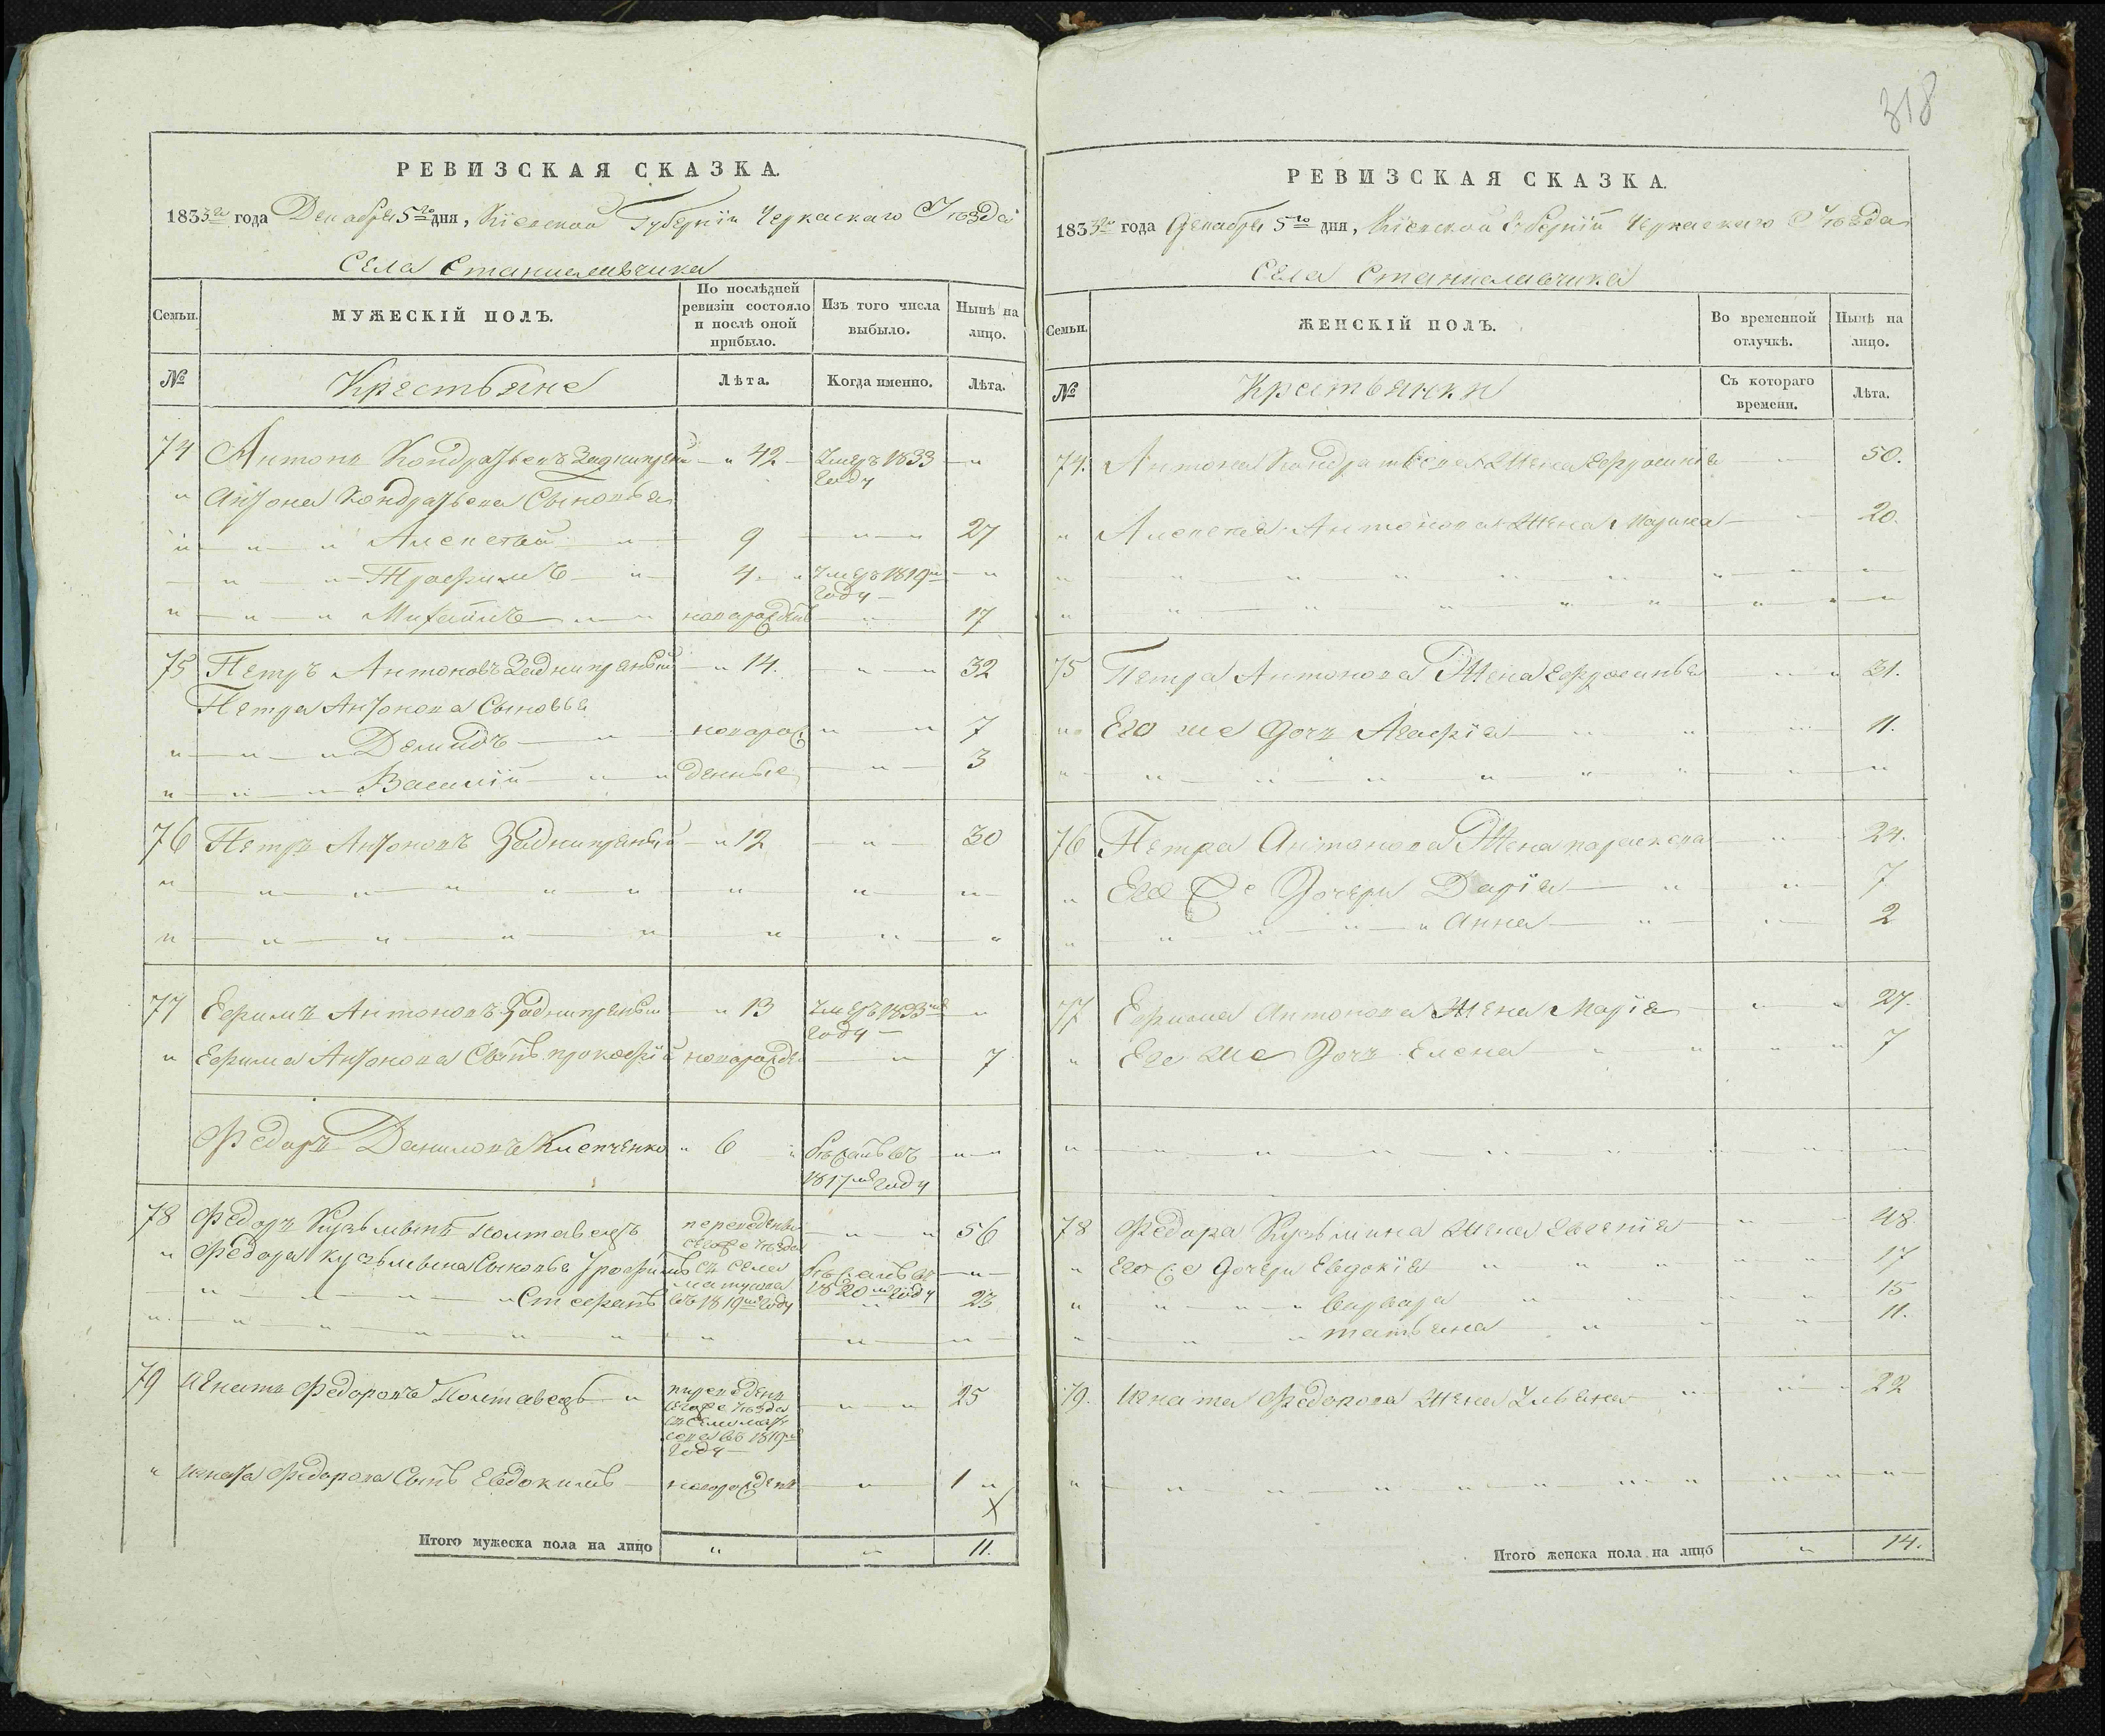 РЕВИЗСКАЯ СКАЗКА.
1833го года Декабря 5го дня, Кіевской Губерніи Черкаскаго Уѣзда
Села Станиславчика
Семьи. МУЖЕСКІЙ ПОЛЪ. По послѣдней ревизіи состояло и послѣ оной прибыло. Изъ того числа выбыло. Нынѣ на лицо.
№ Крестьяне Лѣта. Когда именно. Лѣта.
74 Антонъ Кондратьевъ Заднипряный " 42 Умеръ 1833 году "
" Антона Кондратьева Сыновья
" " " Алексѣй " 9 " " 27
" " Трофимъ " 4 " Умеръ 1819го году "
" " " Михаилъ " " новорожденъ " 17
75 Петръ Антоновъ Заднипряный " 14. " " 32
Петра Антонова Сыновья
" " " Демидъ " новорож " " 7
" " " Василій " " денные " 3
76 Петръ Антоновъ Заднипряный " 12 " 30
" " " " " " " " "
" " " " " " " " "
77 Ефимъ Антоновъ Заднипряный " 13 Умеръ 1833мъ году "
" Ефима Антонова Сынъ прокофій новорожде " 7
Федоръ Даниловъ Клепченко " 6 " Бѣжалъ въ 1817мъ году " "
78 Федоръ Кузьминъ Полтавецъ переведены сегоже уѣзда " " 56
" Федора кузьмина Сыновья Трофимъ съ села Матусова Бѣжалъ въ 1820мъ году "
" " " " Стефанъ въ 1819мъ году " 23
" " " " " " " " "
79 Игнатъ Федоровъ Полтавецъ " переведенъ сегоже уѣзда съ села Мату сова въ 1819мъ году " " 25
" Игната Федорова Сынъ Евдокимъ новорожденъ " 1 "
X
Итого мужеска пола на лицо " " 11.
318
РЕВИЗСКАЯ СКАЗКА.
1833го года Декабря 5го дня, Кіевской Губерніи Черкаскаго Уѣзда
Села Станиславчика
Семьи. ЖЕНСКІЙ ПОЛЪ. Во временной отлучкѣ. Нынѣ на лицо.
№ Крестьянки Съ котораго времени. Лѣта.
74. Антона Кондратьева Жена Ефросинія 50.
" Алексея Антонова Жена Марина 20.
" " " " " " " " "
" " " " " " " " "
75 Петра Антонова Жена Ефросинья " " 31.
" Его же Дочь Агафія " " " 11.
" " " " " " " " "
76 Петра Антонова Жена параскева " 24.
" Его же Дочери Дарія " " 7
" " " " " Анна " " 2
77 Ефима Антонова Жена Марія " " 27.
" Его же Дочь Елена " " " " 7
" " " " " " " " "
78 Федора Кузьмина Жена Евгенія " 48
" Его же Дочери Евдокія " " " " " 17
" " " " " Варвара " " " " 15
" " " татьяна " " " 11.
79. Игната Федорова Жена Ульяна " " " 22
" " " " " " " " " " "
Итого женска пола на лицо " 14.